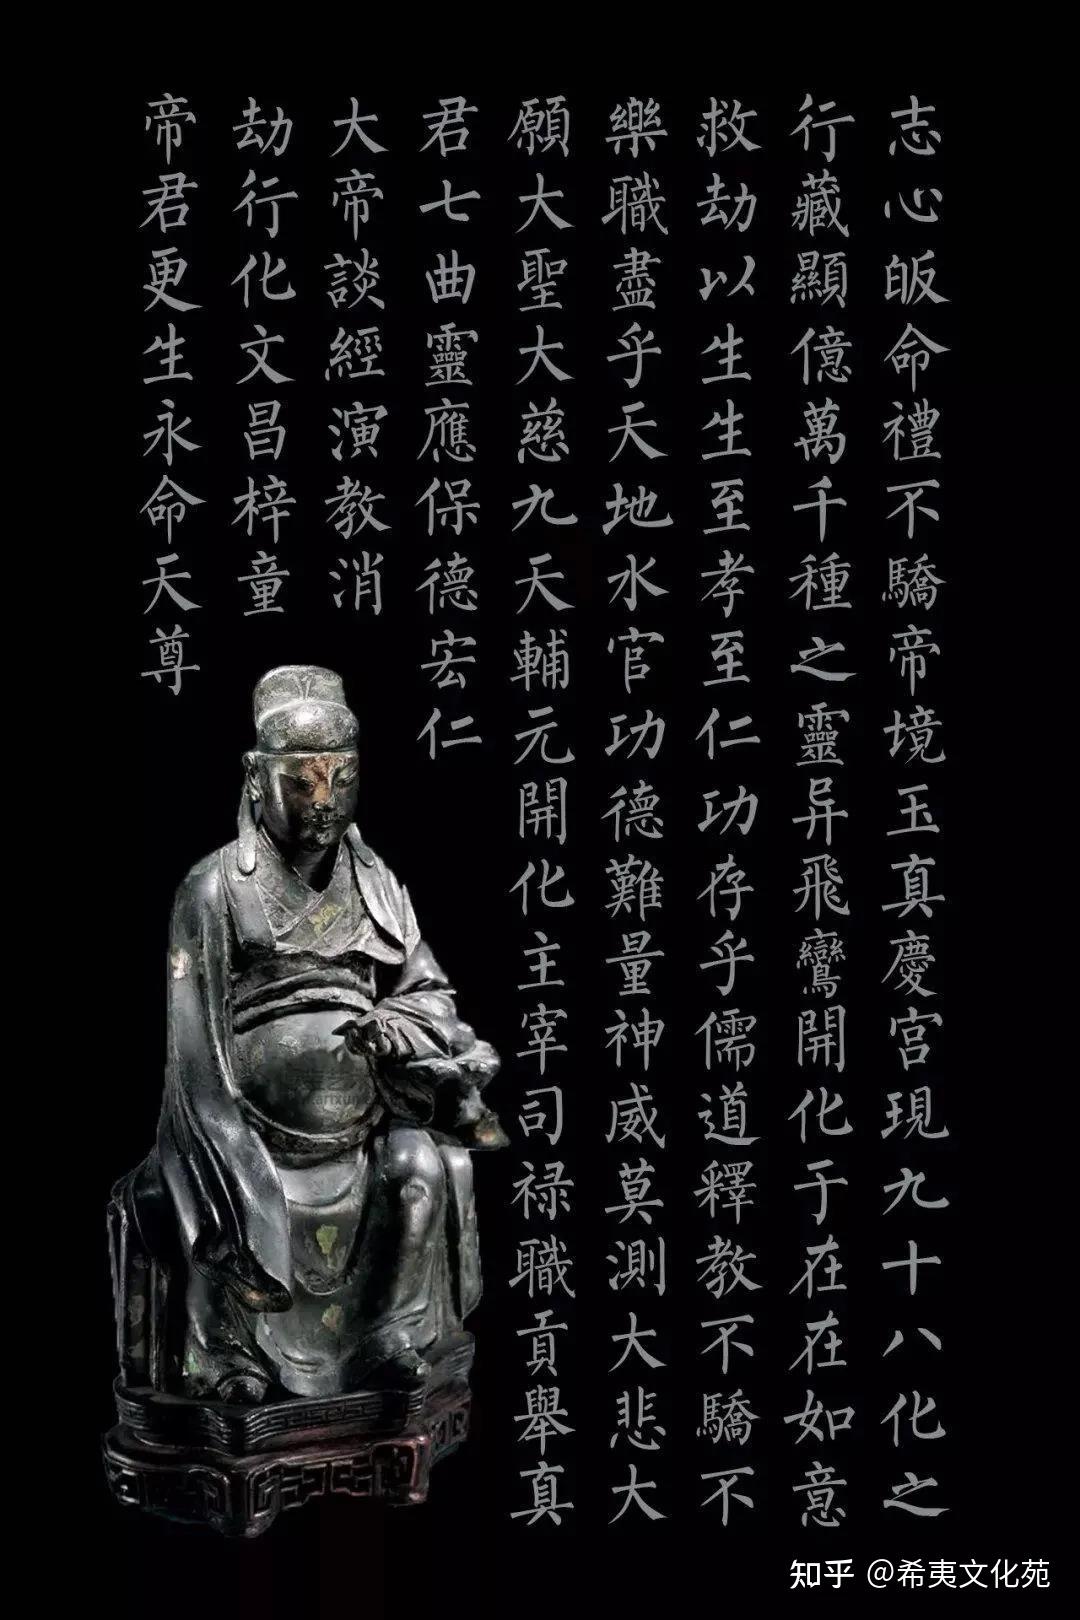 志心皈命禮不驕帝境玉真慶宮現九十八化之
行藏顯億萬千種之靈异飛鸞開化于在在如意
救劫以生生至孝至仁功存乎儒道釋教不驕不
樂職盡乎天地水官功德難量神威莫測大悲大
願大聖大慈九天輔元開化主宰司禄職貢舉真
君七曲靈應保德宏仁
大帝談經演教消
劫行化文昌梓童
帝君更生永命天尊
知乎 @希夷文化苑